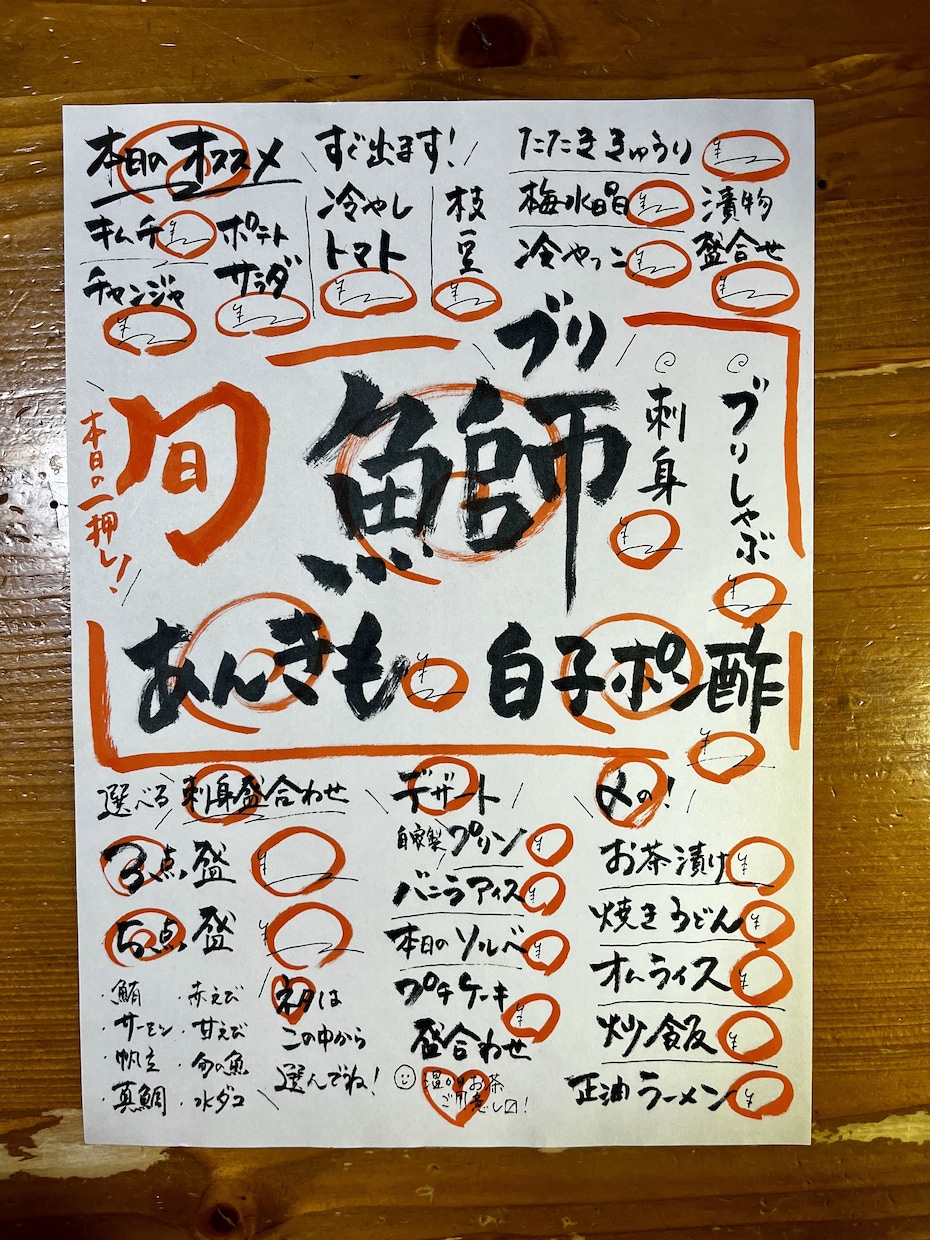 本日のオススメ
キムチ ¥
チャンジャ ¥
ポテト
サラダ ¥
すぐ出ます!
冷やし
トマト ¥
枝豆 ¥
たたききゅうり ¥
梅水晶 ¥
冷やっこ ¥
漬物
盛合せ ¥
本日の一押し!
旬
ブリ
鰤
刺身 ¥
ブリしゃぶ ¥
あんきも ¥
白子ポン酢 ¥
選べる刺身盛合わせ
3点盛 ¥
5点盛 ¥
・鮪
・サーモン
・帆立
・真鯛
・赤えび
・甘えび
・旬の魚
・水ダコ
ネタは
この中から
選んでね!
デザート
自家製プリン ¥
バニラアイス ¥
本日のソルベ ¥
プチケーキ
盛合わせ ¥
温かいお茶
ご用意し〼!
〆の!
お茶漬け ¥
焼きうどん ¥
オムライス ¥
炒飯 ¥
正油ラーメン ¥